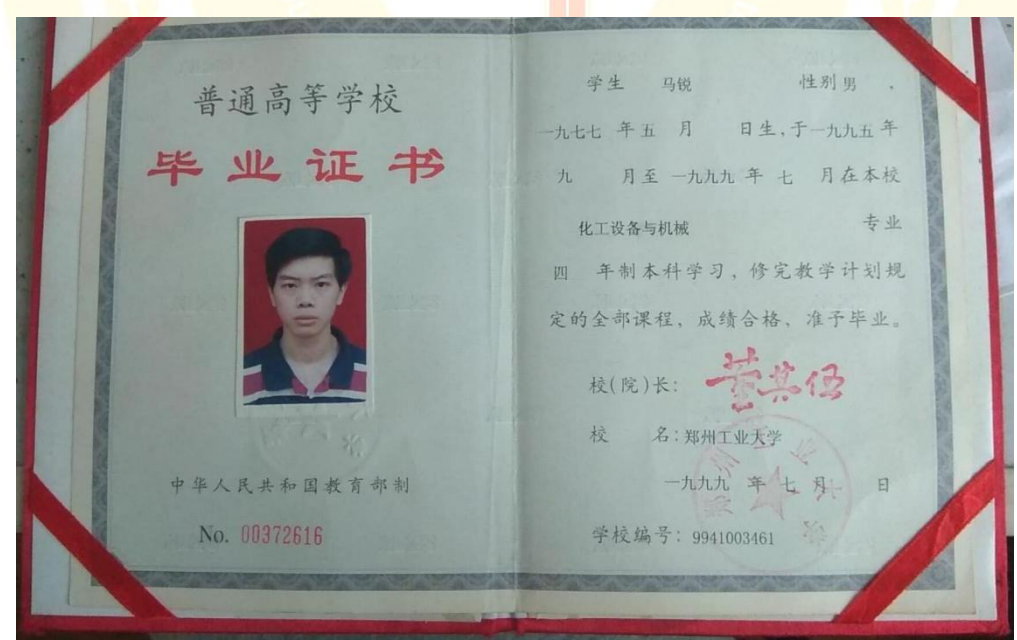 普通高等学校
毕业证书
中华人民共和国教育部制
No. 00372616
学生 马锐 性别 男 ,
一九七七 年 五 月 日生,于 一九九五 年
九 月至 一九九九 年 七 月在本校
化工设备与机械 专业
四 年制本科学习，修完教学计划规
定的全部课程，成绩合格，准予毕业。
校(院)长: 董其伍
校 名: 郑州工业大学
一九九九 年 七 月 日
学校编号: 9941003461